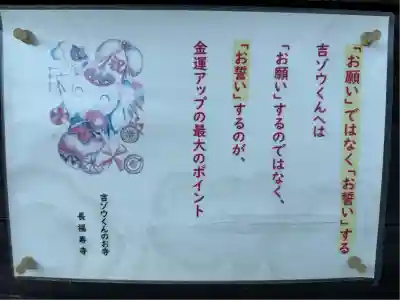 「お願い」ではなく「お誓い」する
吉ゾウくんへは
「お願い」するのではなく、
「お誓い」するのが、
金運アップの最大のポイント
吉ゾウくんのお寺
長福寿寺